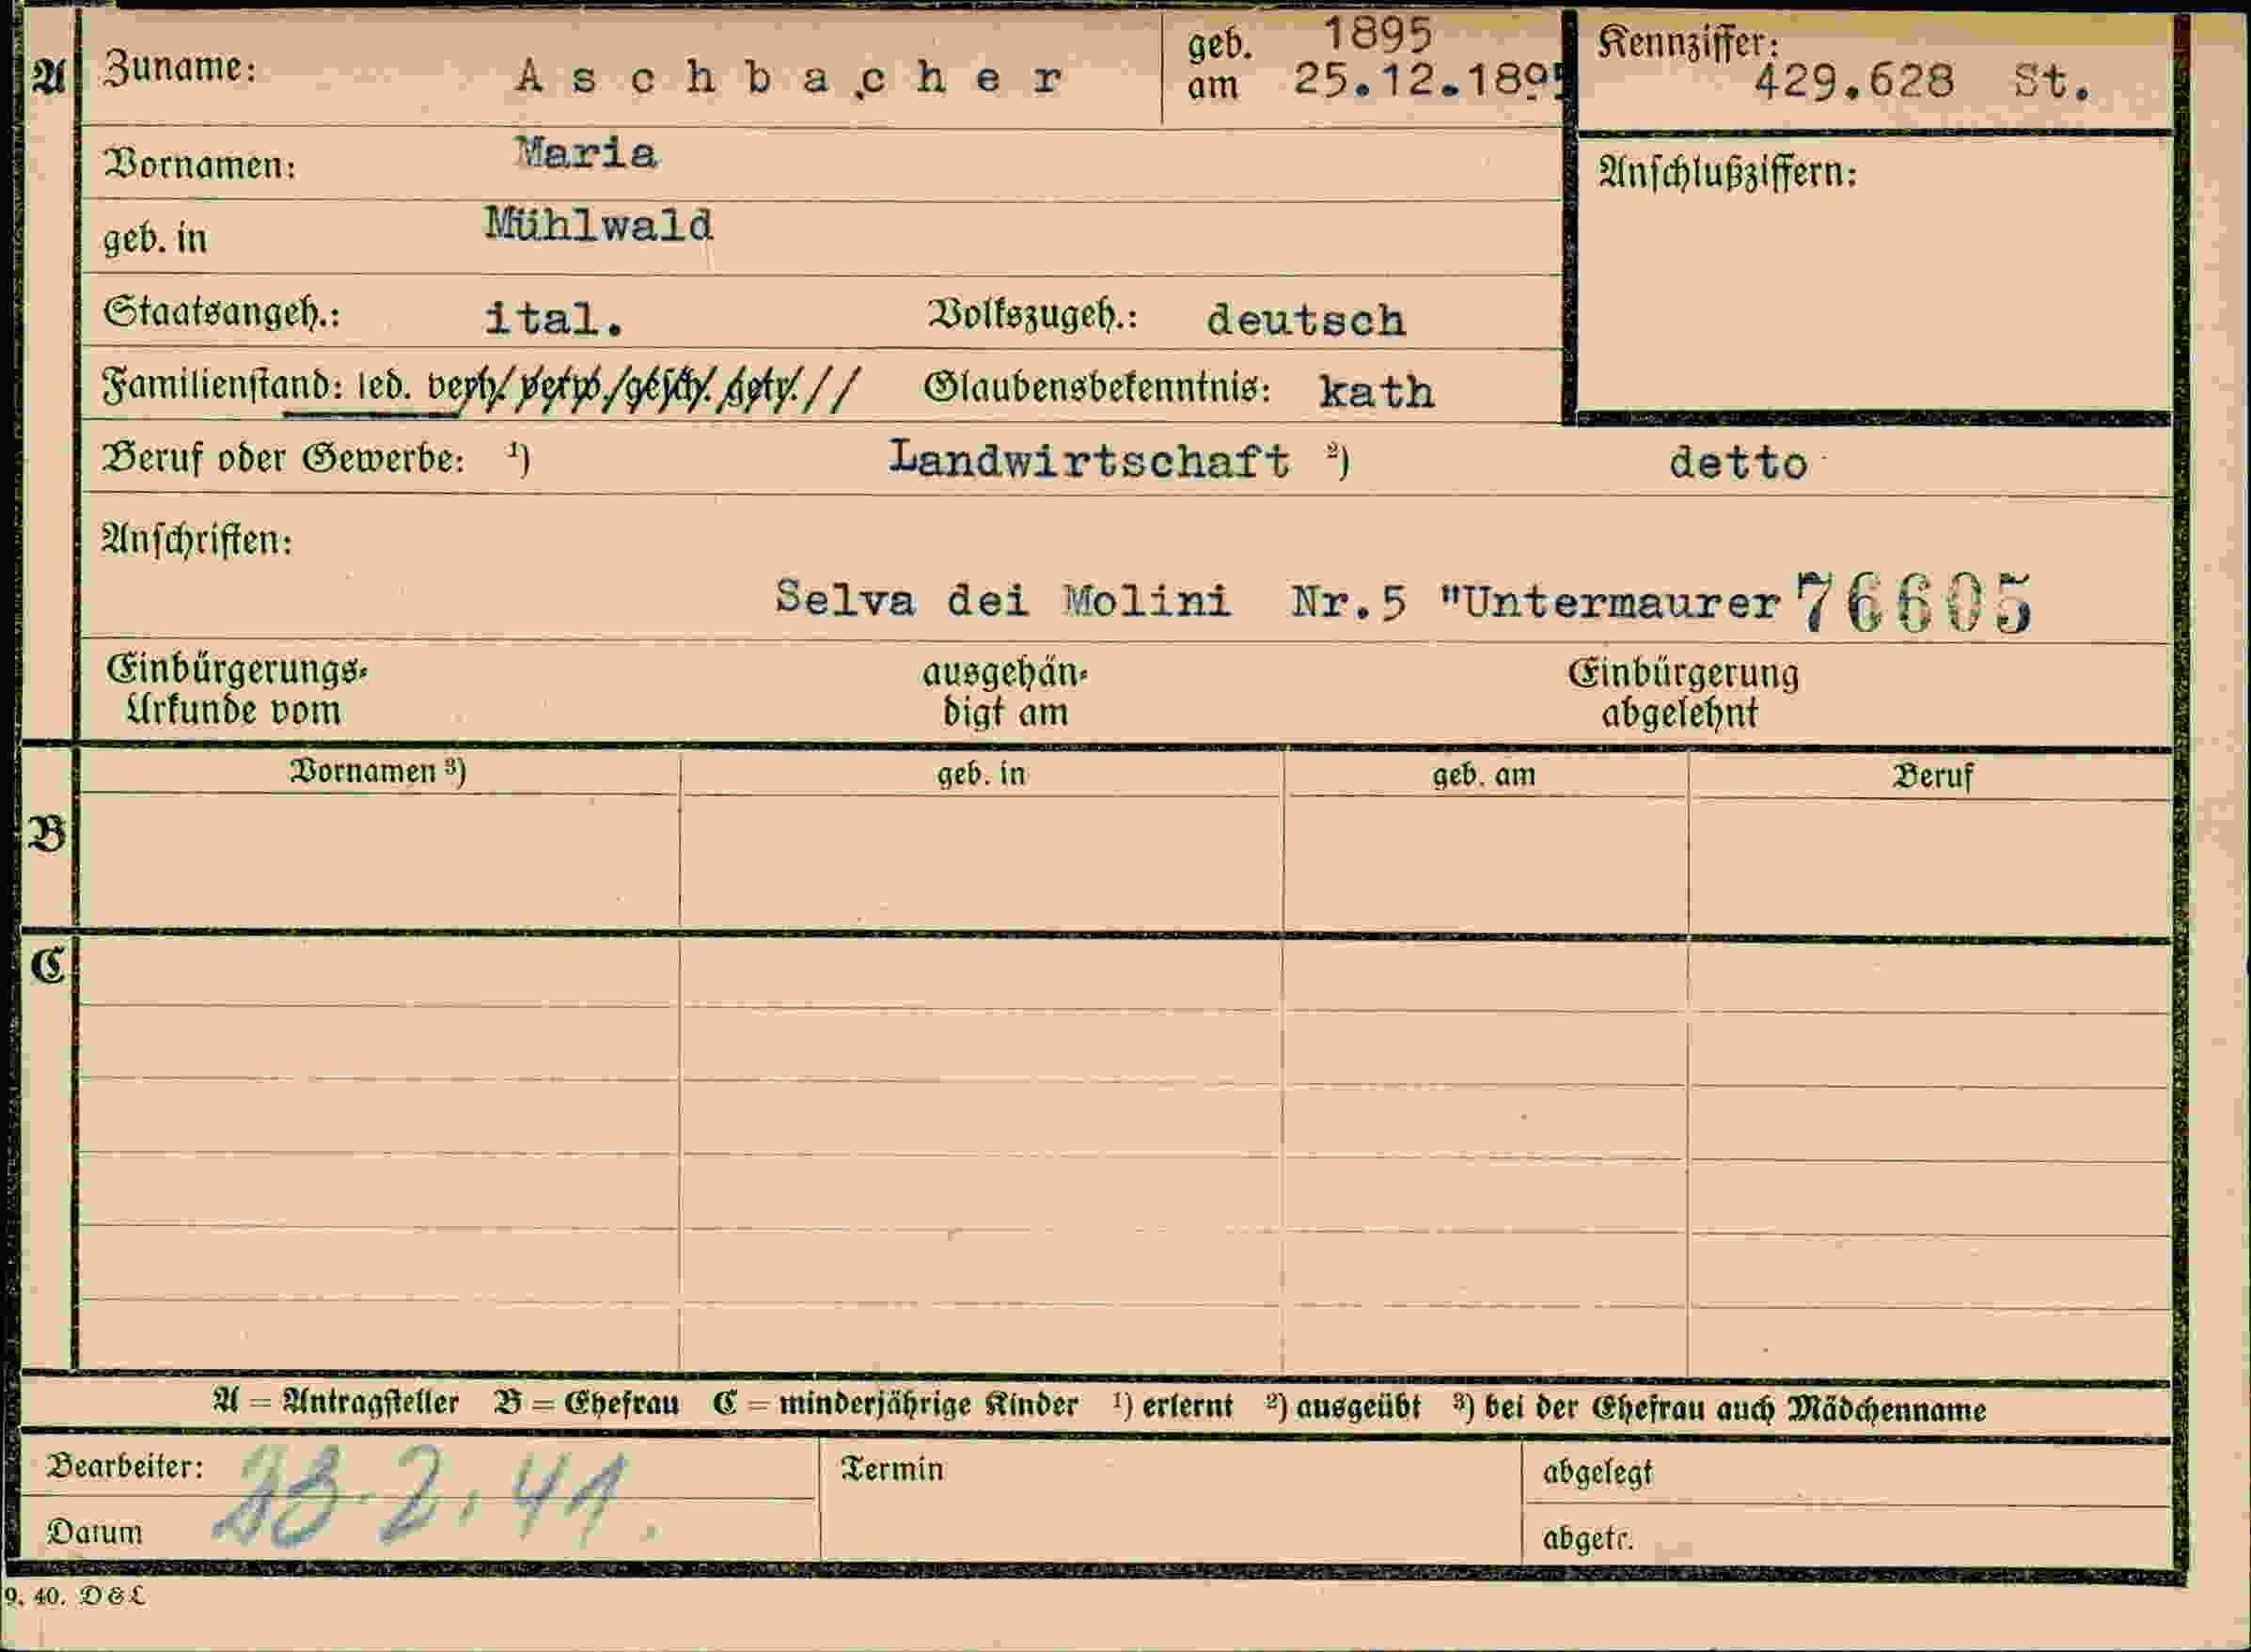 A Zuname: Aschbacher geb. am 1895 25.12.1895 Kennziffer: 429.628 St.
Vornamen: Maria Anschlußziffern:
geb. in Mühlwald
Staatsangeh.: ital. Volkszugeh.: deutsch
Familienstand: led. verh. verw. gesch. getr. Glaubensbekenntnis: kath
Beruf oder Gewerbe: ¹) Landwirtschaft ²) detto
Anschriften:
Selva dei Molini Nr.5 "Untermaurer 76605
Einbürgerungs- ausgehän- Einbürgerung
Urkunde vom digt am abgelehnt
Vornamen ³) geb. in geb. am Beruf
B
C
A = Antragsteller B = Ehefrau C = minderjährige Kinder ¹) erlernt ²) ausgeübt ³) bei der Ehefrau auch Mädchenname
Bearbeiter: Termin abgelegt
23.2.41.
Datum abgetr.
9. 40. D&L